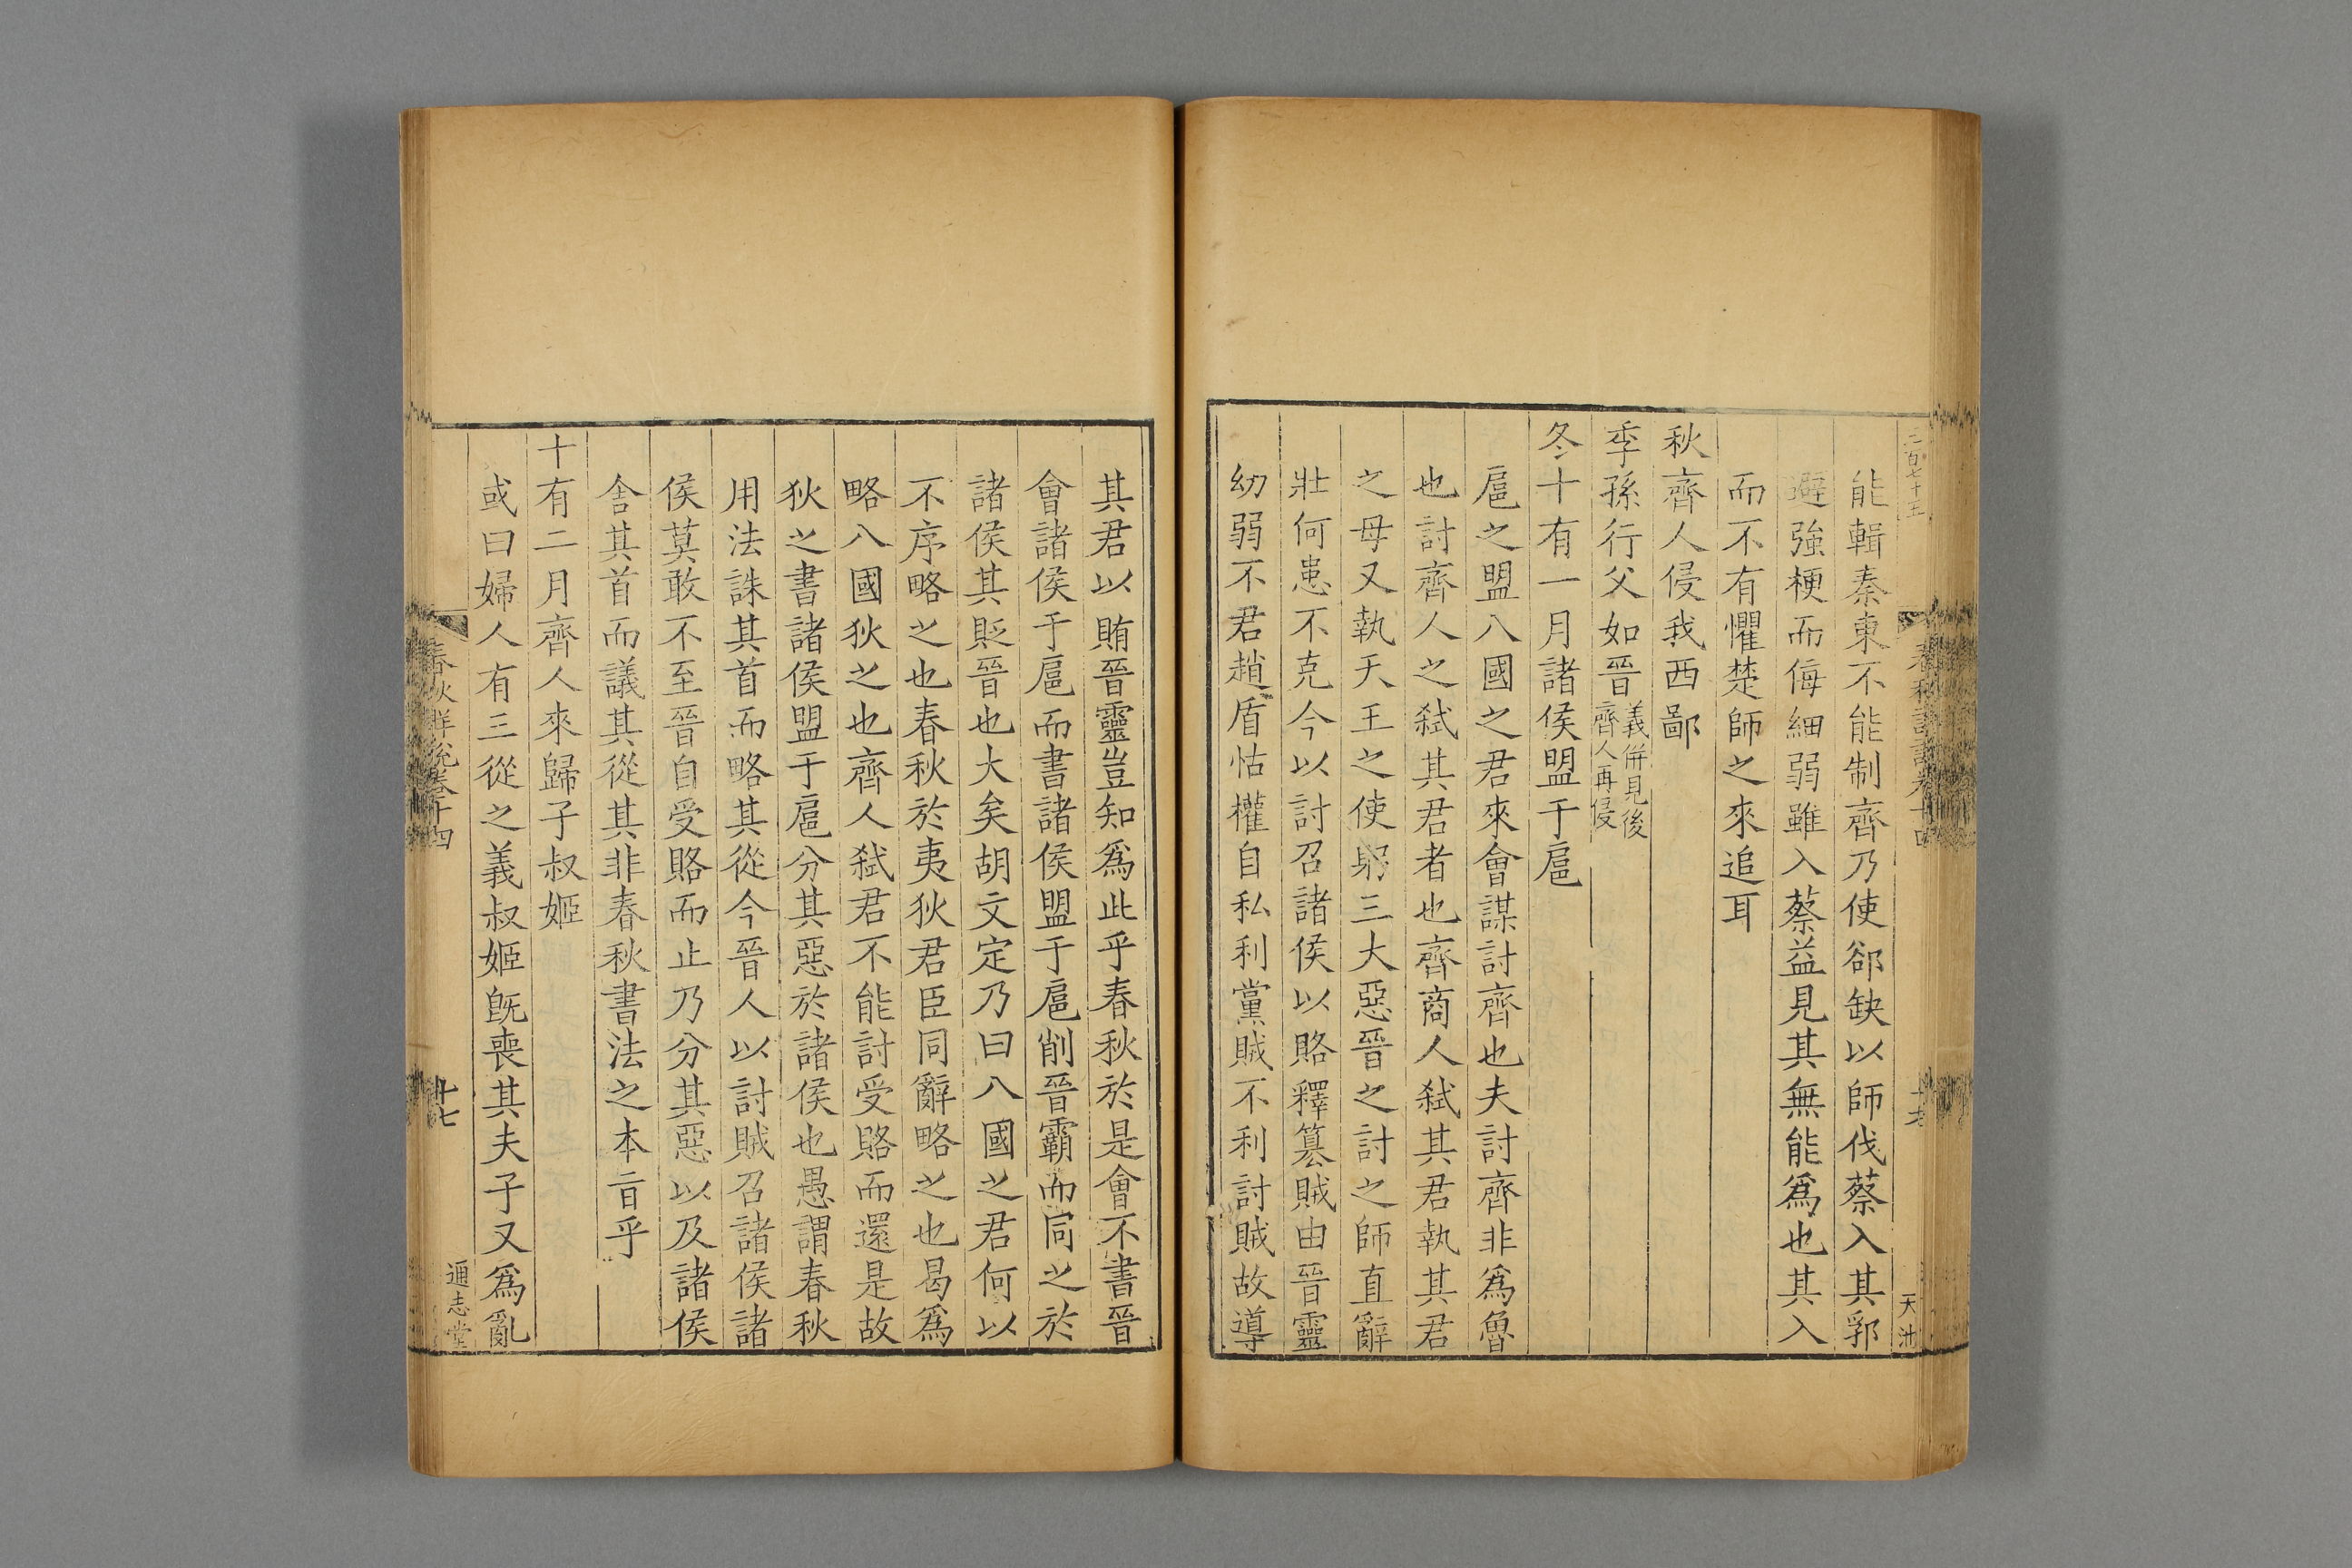 二百七十五
能輯秦東不能制齊乃使郤缺以師伐蔡入其郛
避強梗而侮細弱雖入蔡益見其無能爲也其入
而不有懼楚師之來追耳
秋齊人侵我西鄙
季孫行父如晉義併見後
齊人再侵
冬十有一月諸侯盟于扈
扈之盟八國之君來會謀討齊也夫討齊非爲魯
也討齊人之弑其君者也齊商人弑其君執其君
之母又執天王之使躬三大惡晉之討之師直辭
壯何患不克今以討召諸侯以賂釋篡賊由晉靈
幼弱不君趙盾怙權自私利黨賊不利討賊故導
其君以賄晉靈豈知爲此乎春秋於是會不書晉
會諸侯于扈而書諸侯盟于扈削晉霸而同之於
諸侯其貶晉也大矣胡文定乃曰八國之君何以
不序略之也春秋於夷狄君臣同辭略之也曷爲
略八國狄之也齊人弑君不能討受賂而還是故
狄之書諸侯盟于扈分其惡於諸侯也愚謂春秋
用法誅其首而略其從今晉人以討賊召諸侯諸
侯莫敢不至晉自受賂而止乃分其惡以及諸侯
舍其首而議其從其非春秋書法之本旨乎
十有二月齊人來歸子叔姬
或曰婦人有三從之義叔姬旣喪其夫子又爲亂
春秋詳說卷十四
十七
通志堂
天池